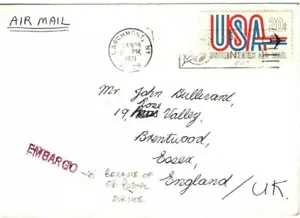 AIR MAIL
LARCHMONT, NY
PM
1971
USA 20c
UNITED STATES AIR MAIL
Mr John Bullivant,
19, Valley,
Brentwood,
Essex,
England / U.K.
EMBARGO
BECAUSE OF
GB POSTAL